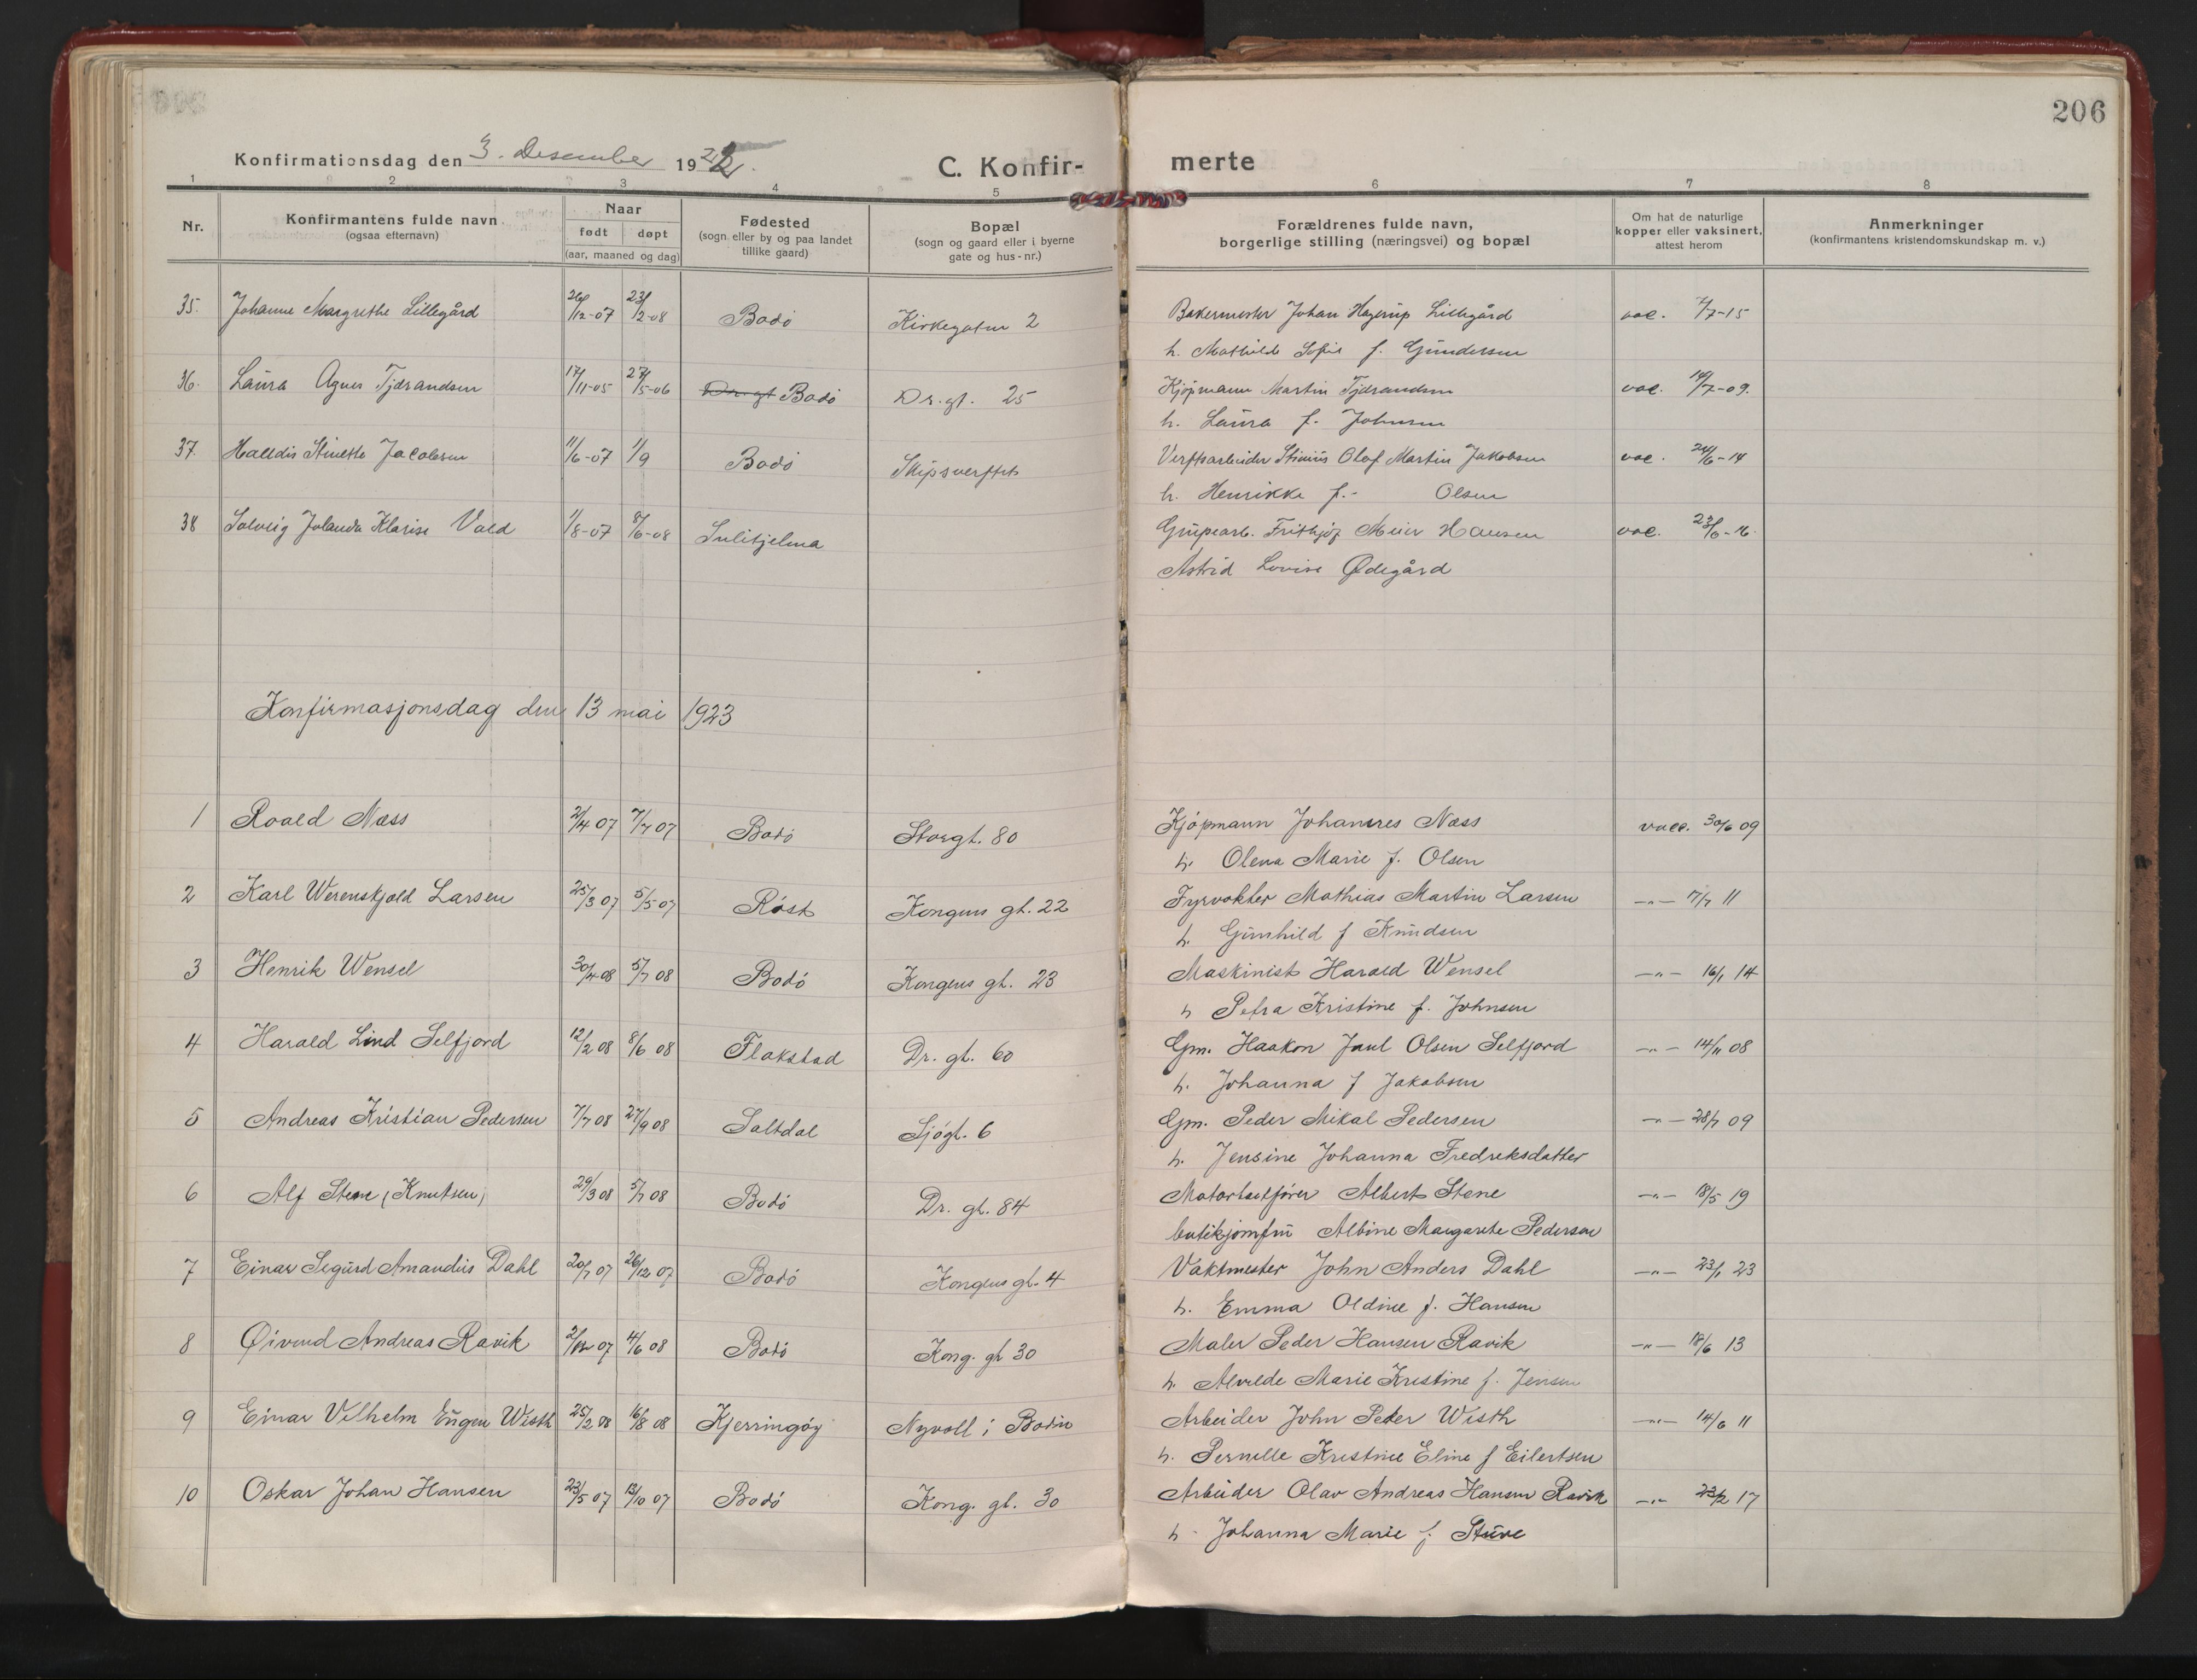 206
Konfirmationsdag den 3. Desember 1922.
C. Konfirmerte
1 2 3 4 5 6 7 8
Nr.
Konfirmantens fulde navn
(ogsaa efternavn)
Naar
født døpt
(aar, maaned og dag)
Fødested
(sogn eller by og paa landet
tillike gaard)
Bopæl
(sogn og gaard eller i byerne
gate og hus-nr.)
Forældrenes fulde navn,
borgerlige stilling (næringsvei) og bopæl
Om hat de naturlige
kopper eller vaksinert,
attest herom
Anmerkninger
(konfirmantens kristendomskundskap m. v.)
35. Johanne Margrethe Lillegård 26/12-07 23/2-08 Bodö Kirkegaten 2 Bakermester Johan Hagerup Lillegård vac. /7-15
h. Mathilde Sofie f. Gundersen
36. Laura Agnes Tjærandsen 17/11-05 27/5-06 Dr.gt Bodö Dr.gt. 25 Kjöpmann Martin Tjærandsen vac. 14/7-09.
h. Laura f. Johnsen
37. Halldis Stinette Jacobsen 11/6-07 1/9 Bodö Skipsverftet Verftsarbeider Stinius Olaf Martin Jakobsen vac. 24/6-14
h. Henrikke f. Olsen
38 Solveig Jolanda Klarise Vold 1/8-07 8/6-08 Sulitjelma Grupearb. Frithjof Meier Hansen vac. 23/6-16.
Astrid Lovise Ødegård
Konfirmasjonsdag den 13 mai 1923
1 Roald Næss 2/4 07 7/7 07 Bodö Storgt. 80 Kjöpmann Johannes Næss vacc. 30/6 09
h. Olena Marie f. Olsen
2 Karl Werenskjold Larsen 25/3 07 5/5 07 Röst Kongens gt. 22 Fyrvokter Mathias Martin Larsen —"— 7/7 11
h. Gunhild f Knudsen
3 Henrik Wensel 30/4 08 5/7 08 Bodö Kongens gt. 23 Maskinist Harald Wensel —"— 16/1 14
h Petra Kristine f. Johnsen
4 Harald Lind Selfjord 12/2 08 8/6 08 Flakstad Dr. gt. 60 Gm. Haakon Juul Olsen Selfjord —"— 14/11 08
h. Johanna f Jakobsen
5 Andreas Kristian Pedersen 7/7 08 27/9 08 Saltdal Sjögt. 6 Gm. Peder Mikal Pedersen —"— 28/7 09
h. Jensine Johanna Fredreksdatter
6 Alf Stene (Knutsen) 29/3 08 5/7 08 Bodö Dr. gt. 84 Motorbaatförer Albert Stene —"— 18/5 19
butikjomfru Albine Margarete Pedersen
7 Einar Sigurd Amandus Dahl 20/7 07 26/12 07 Bodö Kongens gt. 4 Vaktmester John Anders Dahl —"— 23/1 23
h. Emma Oldine f. Hansen
8 Öivind Andreas Ravik 2/12 07 4/6 08 Bodö Kong. gt 30 Maler Peder Hansen Ravik —"— 18/6 13
h. Alvilde Marie Kristine f. Jensen
9 Einar Vilhelm Eugen Wisth 25/2 08 16/8 08 Kjerringöy Nyvoll i Bodin Arbeider John Peder Wisth —"— 14/6 11
h. Pernelle Kristine Eline f Eilertsen
10 Oskar Johan Hansen 23/5 07 13/10 07 Bodö Kong. gt. 30 Arbeider Olav Andreas Hansen Ravik —"— 23/2 17
h. Johanna Marie f. Stuve